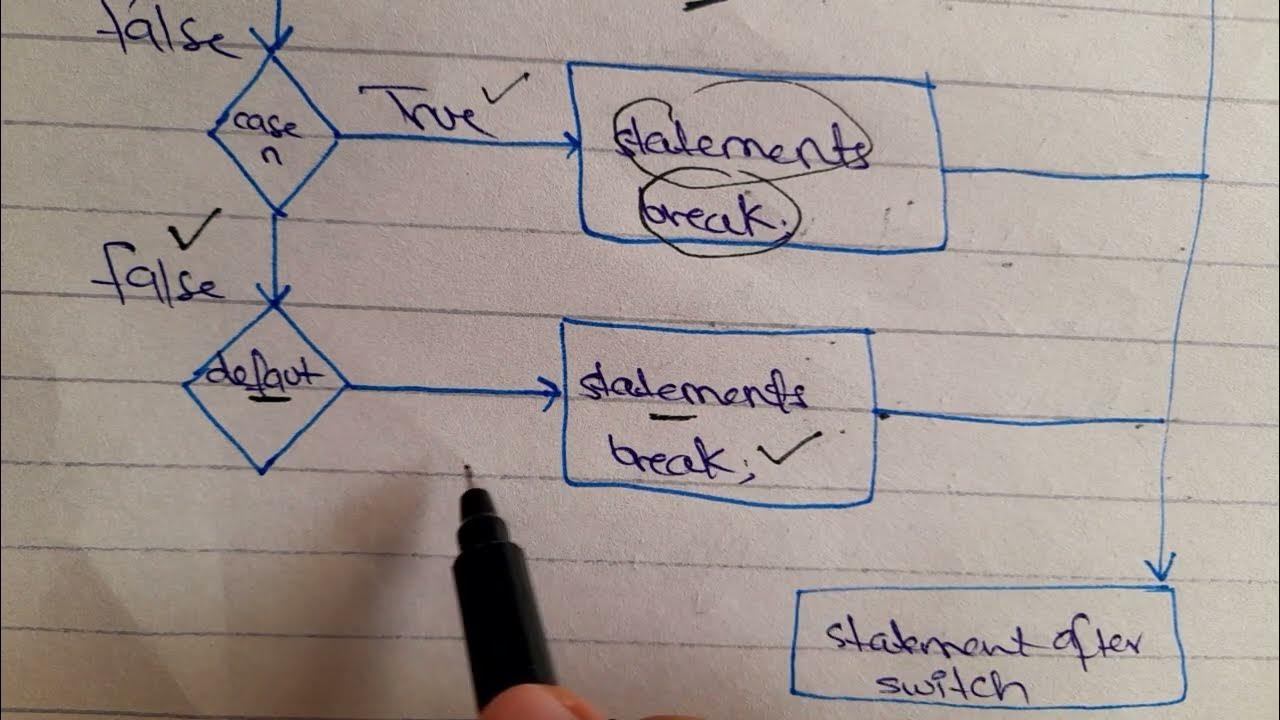 false
case
n
True
statements
break;
false
defaut
statements
break;
statement after
switch